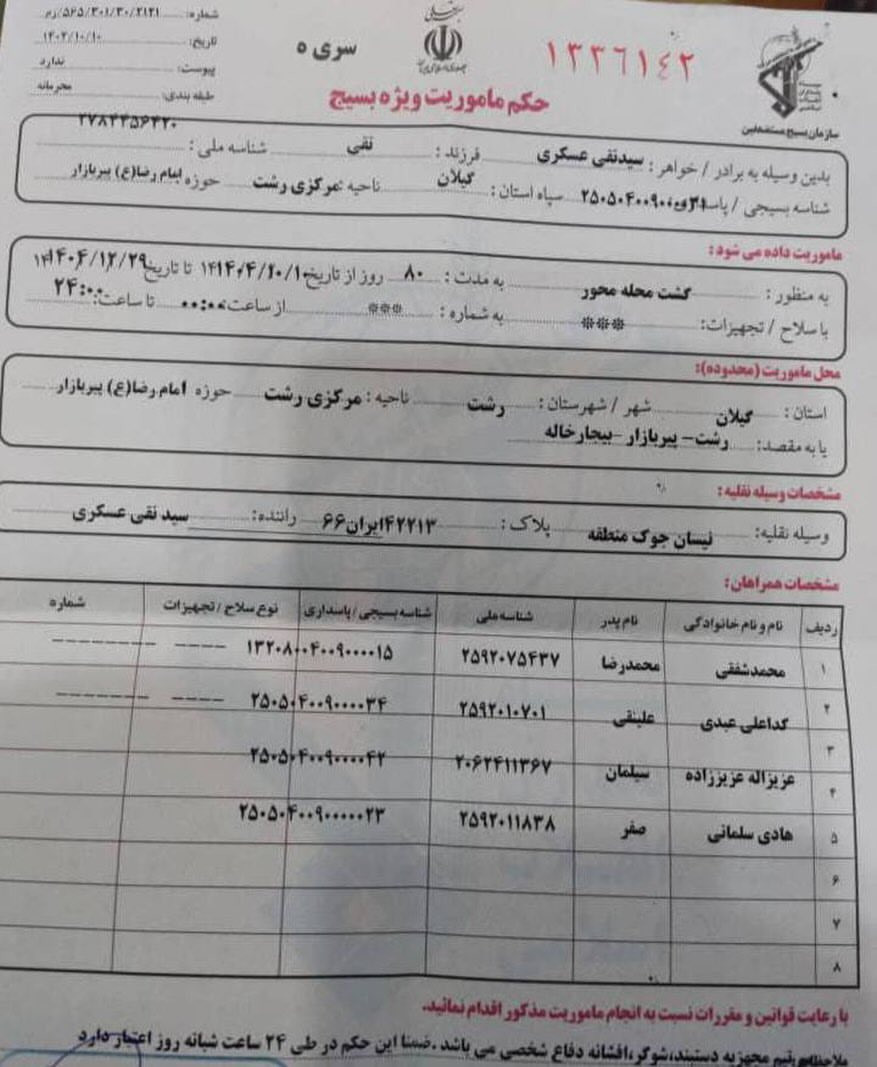 بسمه تعالی
جمهوری اسلامی ایران
سازمان بسیج مستضعفین
۱۳۳۶۱۴۲
سری ه
شماره: ۵۶۵/۳۰۱/۳۰/۲۱۲۱/رم
تاریخ: ۱۴۰۴/۱۰/۱۰
پیوست: ندارد
طبقه بندی: محرمانه
حکم ماموریت ویژه بسیج
بدین وسیله به برادر / خواهر: سیدنقی عسکری فرزند: نقی شناسه ملی: ۲۷۸۴۴۵۶۴۲۰
شناسه بسیجی / پاسداری: ۲۵۰۵۰۴۰۰۹۰۰۰۰۳۱ سپاه استان: گیلان ناحیه: مرکزی رشت حوزه امام رضا(ع) پیربازار
ماموریت داده می شود:
به منظور: گشت محله محور به مدت: ۸۰ روز از تاریخ ۱۴۰۴/۱۰/۱۰ تا تاریخ ۱۴۰۴/۱۲/۲۹
با سلاح / تجهیزات: *** به شماره: *** از ساعت: ۰۰:۰۰ تا ساعت: ۲۴:۰۰
محل ماموریت (محدوده):
استان: گیلان شهر / شهرستان: رشت ناحیه: مرکزی رشت حوزه امام رضا(ع) پیربازار
یا به مقصد: رشت- پیربازار -بیجارخاله
مشخصات وسیله نقلیه:
وسیله نقلیه: نیسان جوک منطقه پلاک: ۴۲۲۱۳ایران۶۶ راننده: سید نقی عسکری
مشخصات همراهان:
ردیف نام و نام خانوادگی نام پدر شناسه ملی شناسه بسیجی / پاسداری نوع سلاح / تجهیزات شماره
۱ محمدشفقی محمدرضا ۲۵۹۲۰۷۵۴۳۷ ۱۳۲۰۸۰۰۴۰۰۹۰۰۰۰۱۵ ---- -------
۲ گداعلی عبدی علینقی ۲۵۹۲۰۱۰۷۰۱ ۲۵۰۵۰۴۰۰۹۰۰۰۰۳۴ ---- -------
۳
۴ عزیزاله عزیززاده سیلمان ۲۰۶۲۴۱۱۳۶۷ ۲۵۰۵۰۴۰۰۹۰۰۰۰۴۲
۵ هادی سلمانی صفر ۲۵۹۲۰۱۱۸۳۸ ۲۵۰۵۰۴۰۰۹۰۰۰۰۰۲۳
۶
۷
۸
با رعایت قوانین و مقررات نسبت به انجام ماموریت مذکور اقدام نمائید.
تیم مجهزبه دستبند،شوکر،افشانه دفاع شخصی می باشد .ضمنا این حکم در طی ۲۴ ساعت شبانه روز اعتبار دارد